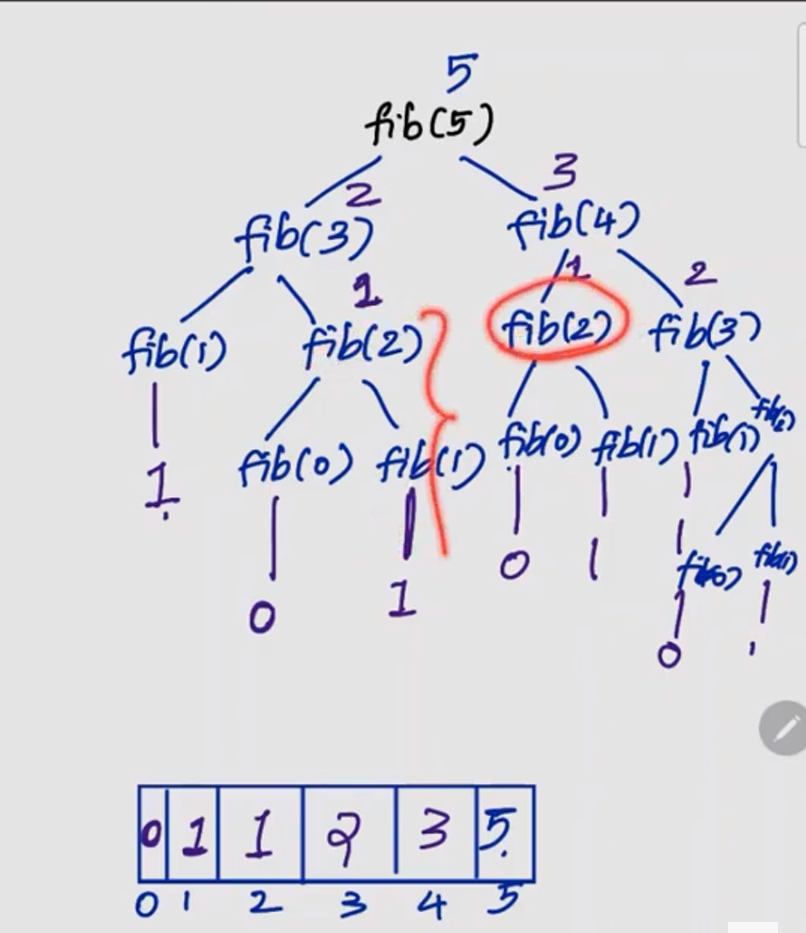 5
fib(5)
2 3
fib(3) fib(4)
1 1 2
fib(1) fib(2) fib(2) fib(3)
fib(0) fib(1) fib(0) fib(1) fib(1) fib(2)
1 0 1 0 1 1
fib(0) fib(1)
0 1
0 1 1 2 3 5
0 1 2 3 4 5